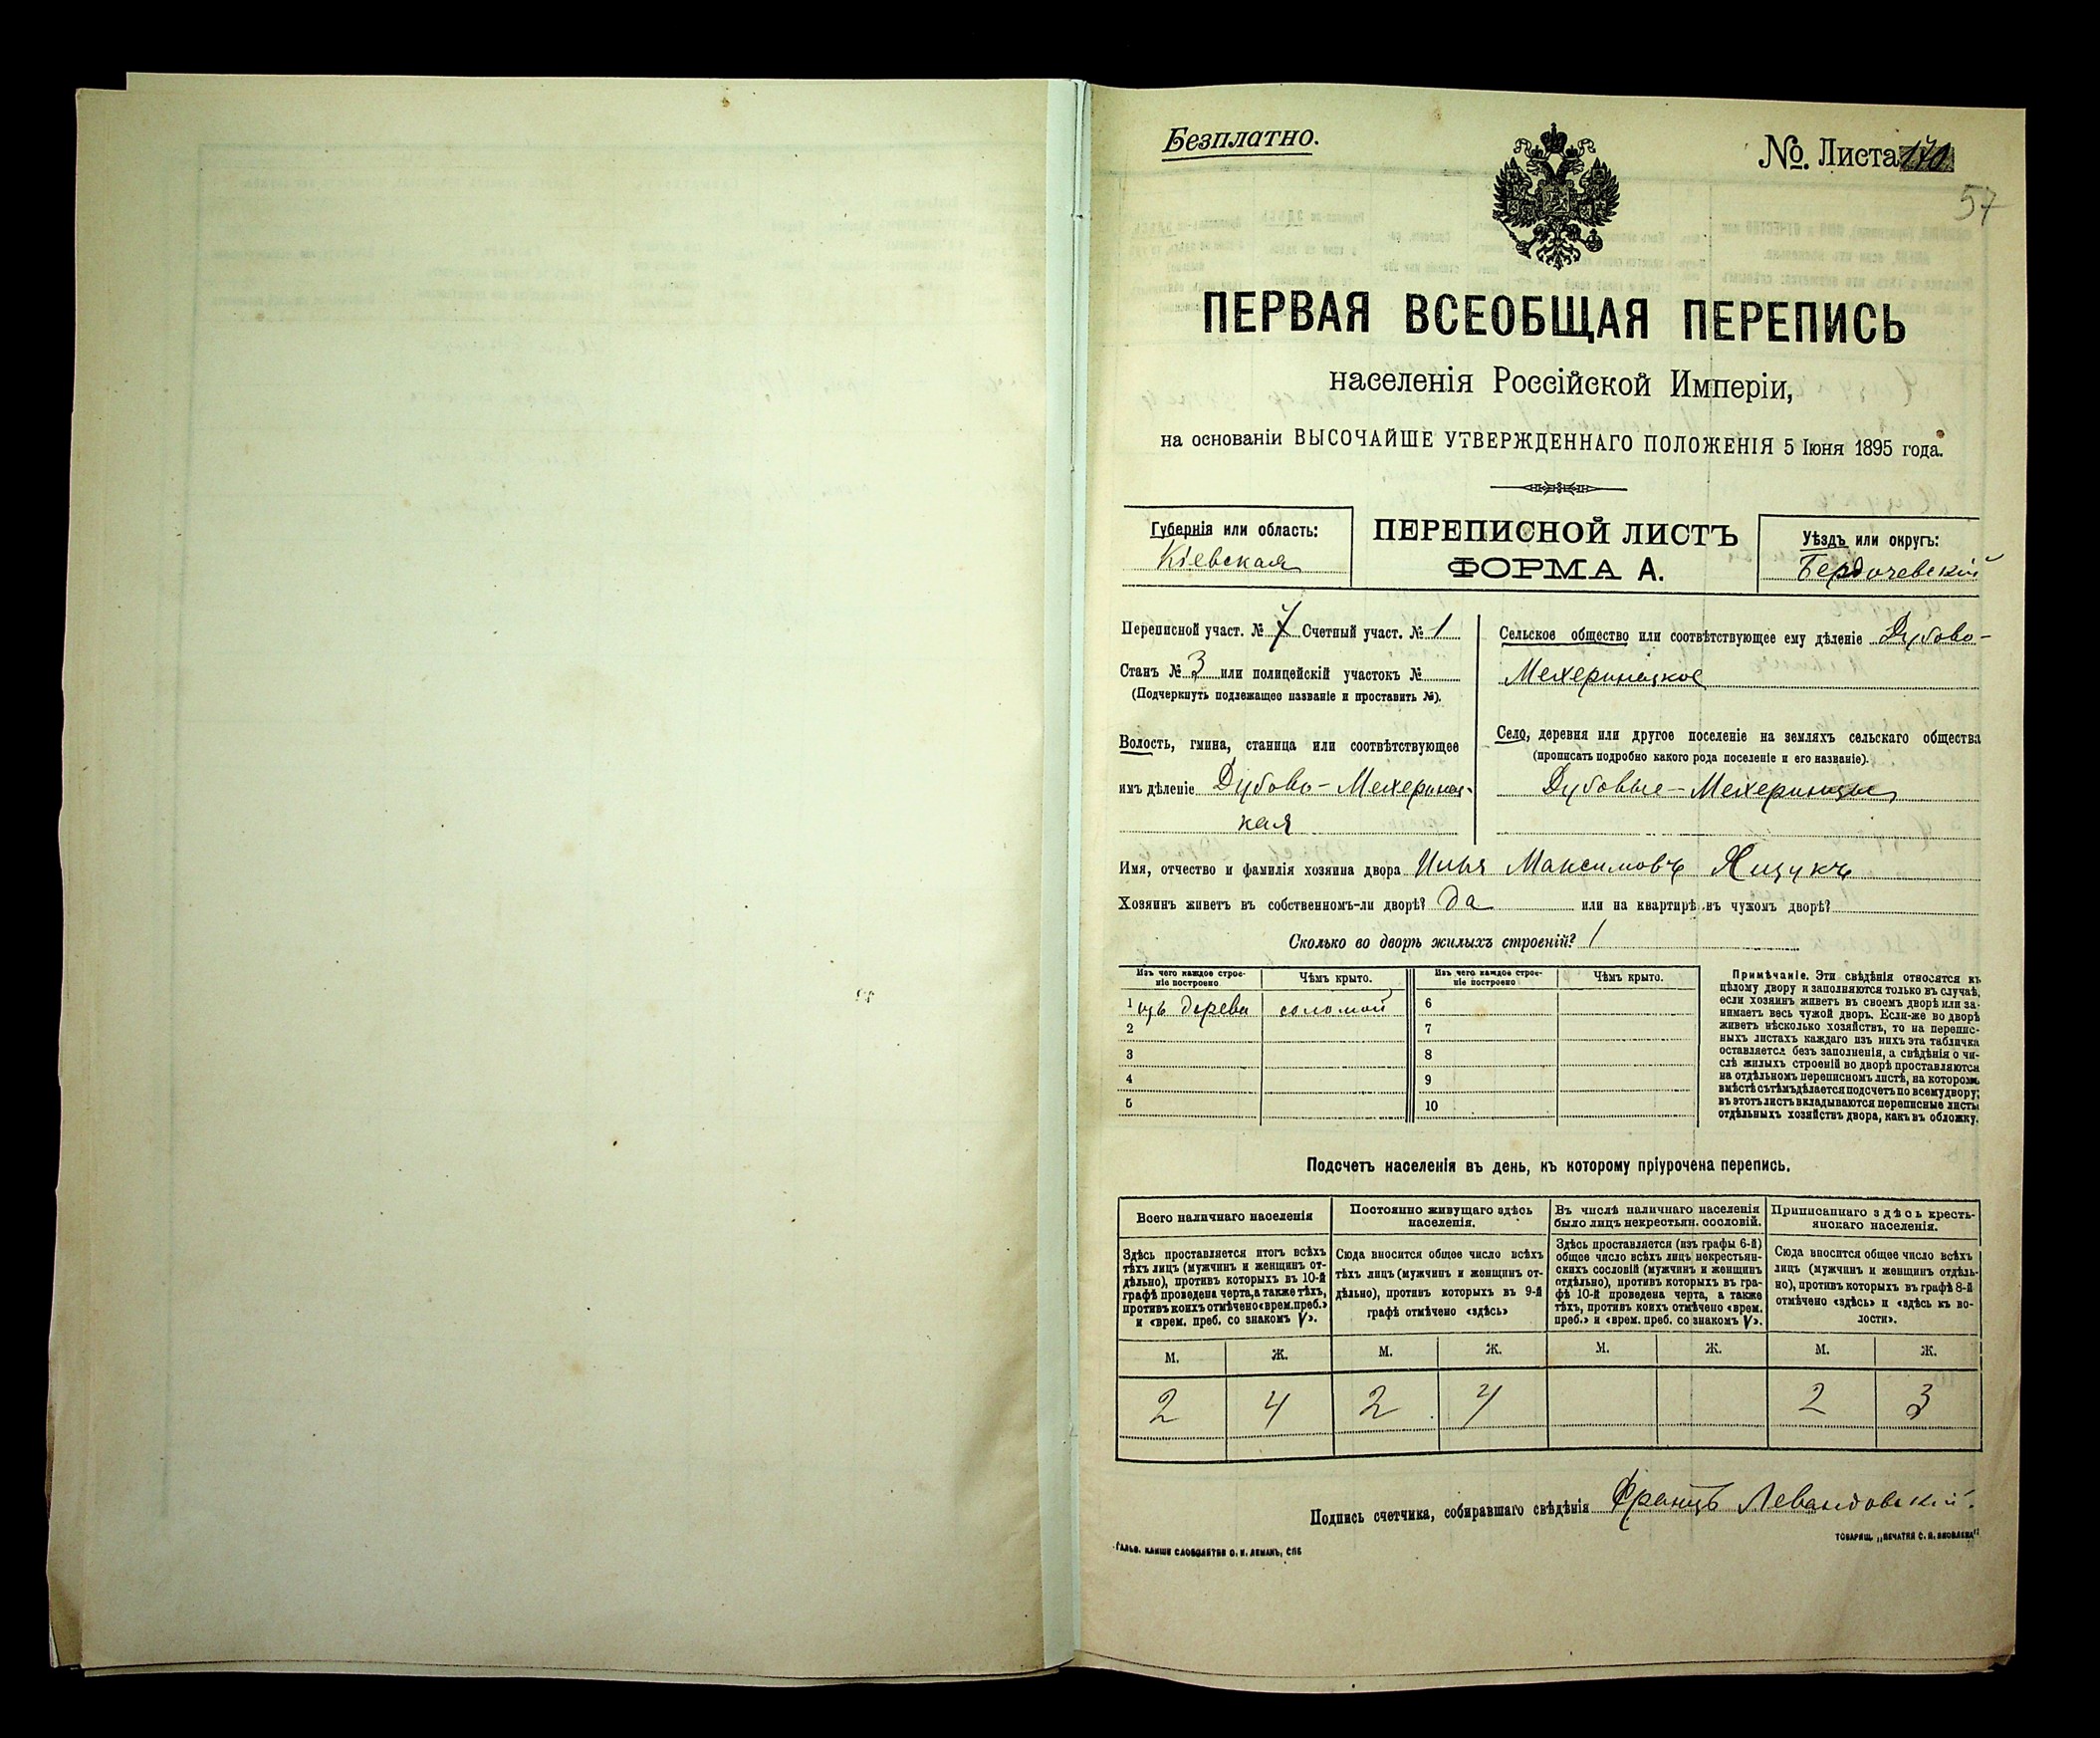 Безплатно.
№. Листа 170
57
ПЕРВАЯ ВСЕОБЩАЯ ПЕРЕПИСЬ
населенія Россійской Имперіи,
на основаніи ВЫСОЧАЙШЕ УТВЕРЖДЕННАГО ПОЛОЖЕНІЯ 5 Іюня 1895 года.
Губернія или область:
Кіевская
ПЕРЕПИСНОЙ ЛИСТЪ
ФОРМА А.
Уѣздъ или округъ:
Бердичевскій
Переписной участ. № 7 Счетный участ. № 1
Станъ № 3 или полицейскій участокъ №
(Подчеркнуть подлежащее названіе и проставить №).
Волость, гмина, станица или соотвѣтствующее
имъ дѣленіе Дубово-Мехеринец-
кая
Сельское общество или соотвѣтствующее ему дѣленіе Дубово-
Мехеринецкое
Село, деревня или другое поселеніе на земляхъ сельскаго общества
(прописать подробно какого рода поселеніе и его названіе).
Дубовые-Мехеринцы
Имя, отчество и фамилія хозяина двора Илья Максимовъ Ящукъ
Хозяинъ живетъ въ собственномъ-ли дворѣ? да или на квартирѣ въ чужомъ дворѣ?
Сколько во дворѣ жилыхъ строеній? 1
Изъ чего каждое строе-
ніе построено
Чѣмъ крыто.
Изъ чего каждое строе-
ніе построено
Чѣмъ крыто.
1 изъ дерева соломой 6
2 7
3 8
4 9
5 10
Примѣчаніе. Эти свѣдѣнія относятся къ
цѣлому двору и заполняются только въ случаѣ,
если хозяинъ живетъ въ своемъ дворѣ или за-
нимаетъ весь чужой дворъ. Если-же во дворѣ
живетъ нѣсколько хозяйствъ, то на перепис-
ныхъ листахъ каждаго изъ нихъ эта табличка
оставляется безъ заполненія, а свѣдѣнія о чи-
слѣ жилыхъ строеній во дворѣ проставляются
на отдѣльномъ переписномъ листѣ, на которомъ
вмѣстѣ съ тѣмъ дѣлается подсчетъ по всему двору;
въ этотъ листъ вкладываются переписные листы
отдѣльныхъ хозяйствъ двора, какъ въ обложку.
Подсчетъ населенія въ день, къ которому пріурочена перепись.
Всего наличнаго населенія
Здѣсь проставляется итогъ всѣхъ
тѣхъ лицъ (мужчинъ и женщинъ от-
дѣльно), противъ которыхъ въ 10-й
графѣ проведена черта, а также тѣхъ,
противъ коихъ отмѣчено «врем. преб.»
и «врем. преб. со знакомъ V».
Постоянно живущаго здѣсь
населенія.
Сюда вносится общее число всѣхъ
тѣхъ лицъ (мужчинъ и женщинъ от-
дѣльно), противъ которыхъ въ 9-й
графѣ отмѣчено «здѣсь»
Въ числѣ наличнаго населенія
было лицъ некрестьян. сословій.
Здѣсь проставляется (изъ графы 6-й)
общее число всѣхъ лицъ некрестьян-
скихъ сословій (мужчинъ и женщинъ
отдѣльно), противъ которыхъ въ гра-
фѣ 10-й проведена черта, а также
тѣхъ, противъ коихъ отмѣчено «врем.
преб.» и «врем. преб. со знакомъ V».
Приписаннаго здѣсь кресть-
янскаго населенія.
Сюда вносится общее число всѣхъ
лицъ (мужчинъ и женщинъ отдѣль-
но), противъ которыхъ въ графѣ 8-й
отмѣчено «здѣсь» и «здѣсь къ во-
лости».
М. Ж. М. Ж. М. Ж. М. Ж.
2 4 2 4 2 3
Подпись счетчика, собиравшаго свѣдѣнія Францъ Левандовскій.
ГАЛЬВ. КЛИШЕ СЛОВОЛИТНИ О. И. ЛЕМАНЪ, СПБ
ТОВАРИЩ. „ПЕЧАТНЯ С. П. ЯКОВЛЕВА“